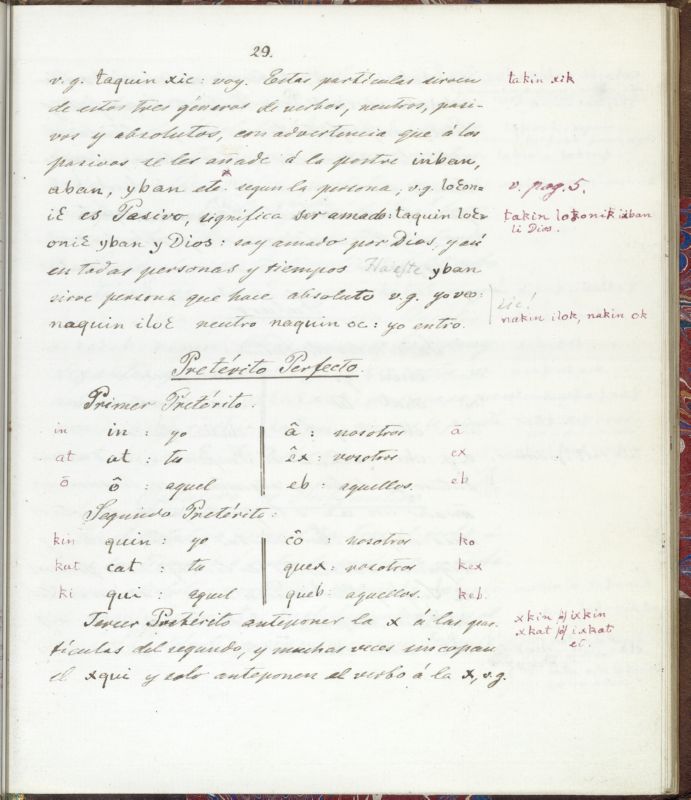 29.
v. g. taquin xic: voy. Estas partículas sirven takin xik
de estos tres géneros de verbos, neutros, pasi-
vos y absolutos, con advertencia que á los
pasivos se les añade á la postre inban,
aban, yban etc. segun la persona, v.g. loƐon= v. pag. 5.
iƐ es Pasivo, significa ser amado: taquin loƐ= takin lokonik inban
oniƐ yban y Dios: soy amado por Dios, y así li Dios.
en todas personas y tiempos este yban
sirve persona que hace absoluto v.g. yo veo: sic!
naquin iloƐ neutro naquin oc: yo entro. nakin ilok, nakin ok
Pretérito Perfecto.
Primer Pretérito.
in in : yo â : nosotros ā
at at : tu êx : vosotros ex
ō ô : aquel eb : aquellos. eb
Segundo Pretérito:
kin quin : yo cô : nosotros ko
kat cat : tu quex : vosotros kex
ki qui : aquel queb : aquellos. keb.
Tercer Pretérito anteponer la x á las par- xkin ixkin
tículas del segundo, y muchas veces sincopan xkat ixkat
el xqui y solo anteponen al verbo á la x, v.g. et.